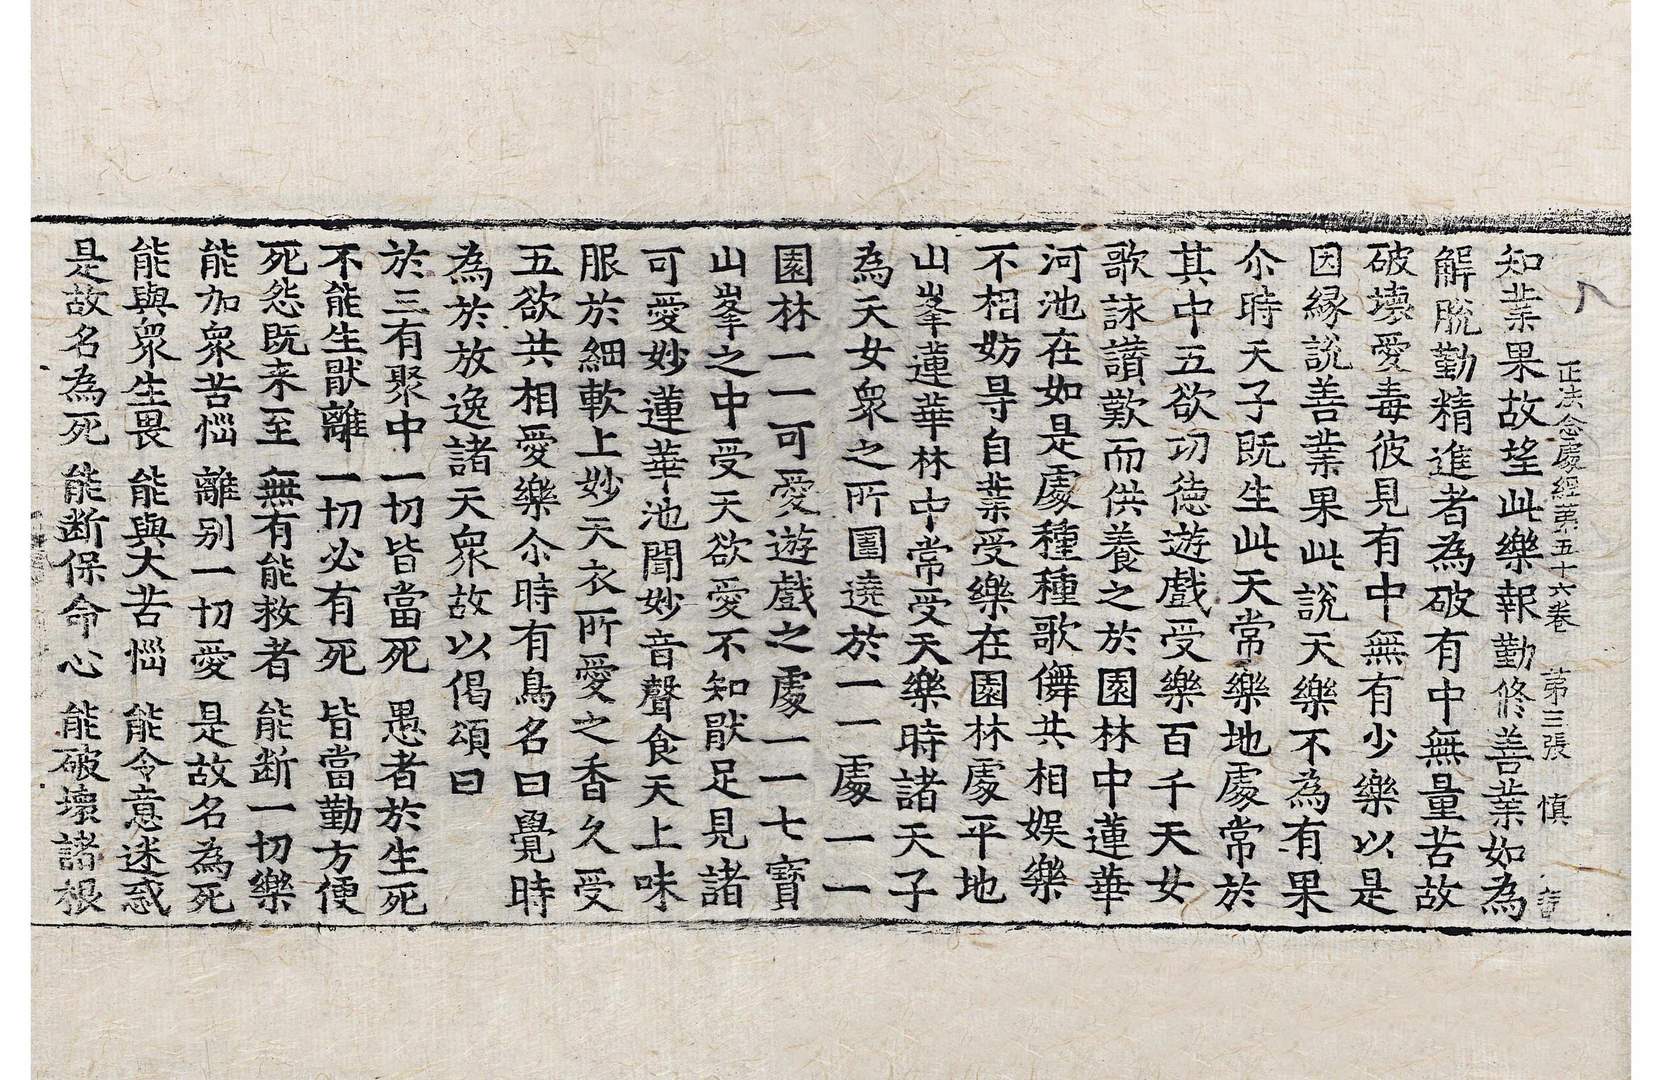 正法念處經第五十六卷 第三張 慎
知業果故望此樂報勤修善業如為
解脫勤精進者為破有中無量苦故
破壞愛毒彼見有中無有少樂以是
因緣說善業果此說天樂不為有果
尒時天子既生此天常樂地處常於
其中五欲功德遊戲受樂百千天女
歌詠讃歎而供養之於園林中蓮華
河池在如是處種種歌儛共相娛樂
不相妨㝵自業受樂在園林處平地
山峯蓮華林中常受天樂時諸天子
為天女衆之所圍遶於一一處一一
園林一一可愛遊戲之處一一七寶
山峯之中受天欲愛不知猒足見諸
可愛妙蓮華池聞妙音聲食天上味
服於細軟上妙天衣所愛之香久受
五欲共相愛樂尒時有鳥名曰覺時
為於放逸諸天衆故以偈頌曰
於三有聚中 一切皆當死 愚者於生死
不能生猒離 一切必有死 皆當勤方便
死怨既来至 無有能救者 能断一切樂
能加衆苦惱 離别一切愛 是故名為死
能與衆生畏 能與大苦惱 能令意迷惑
是故名為死 能断保命心 能破壞諸根